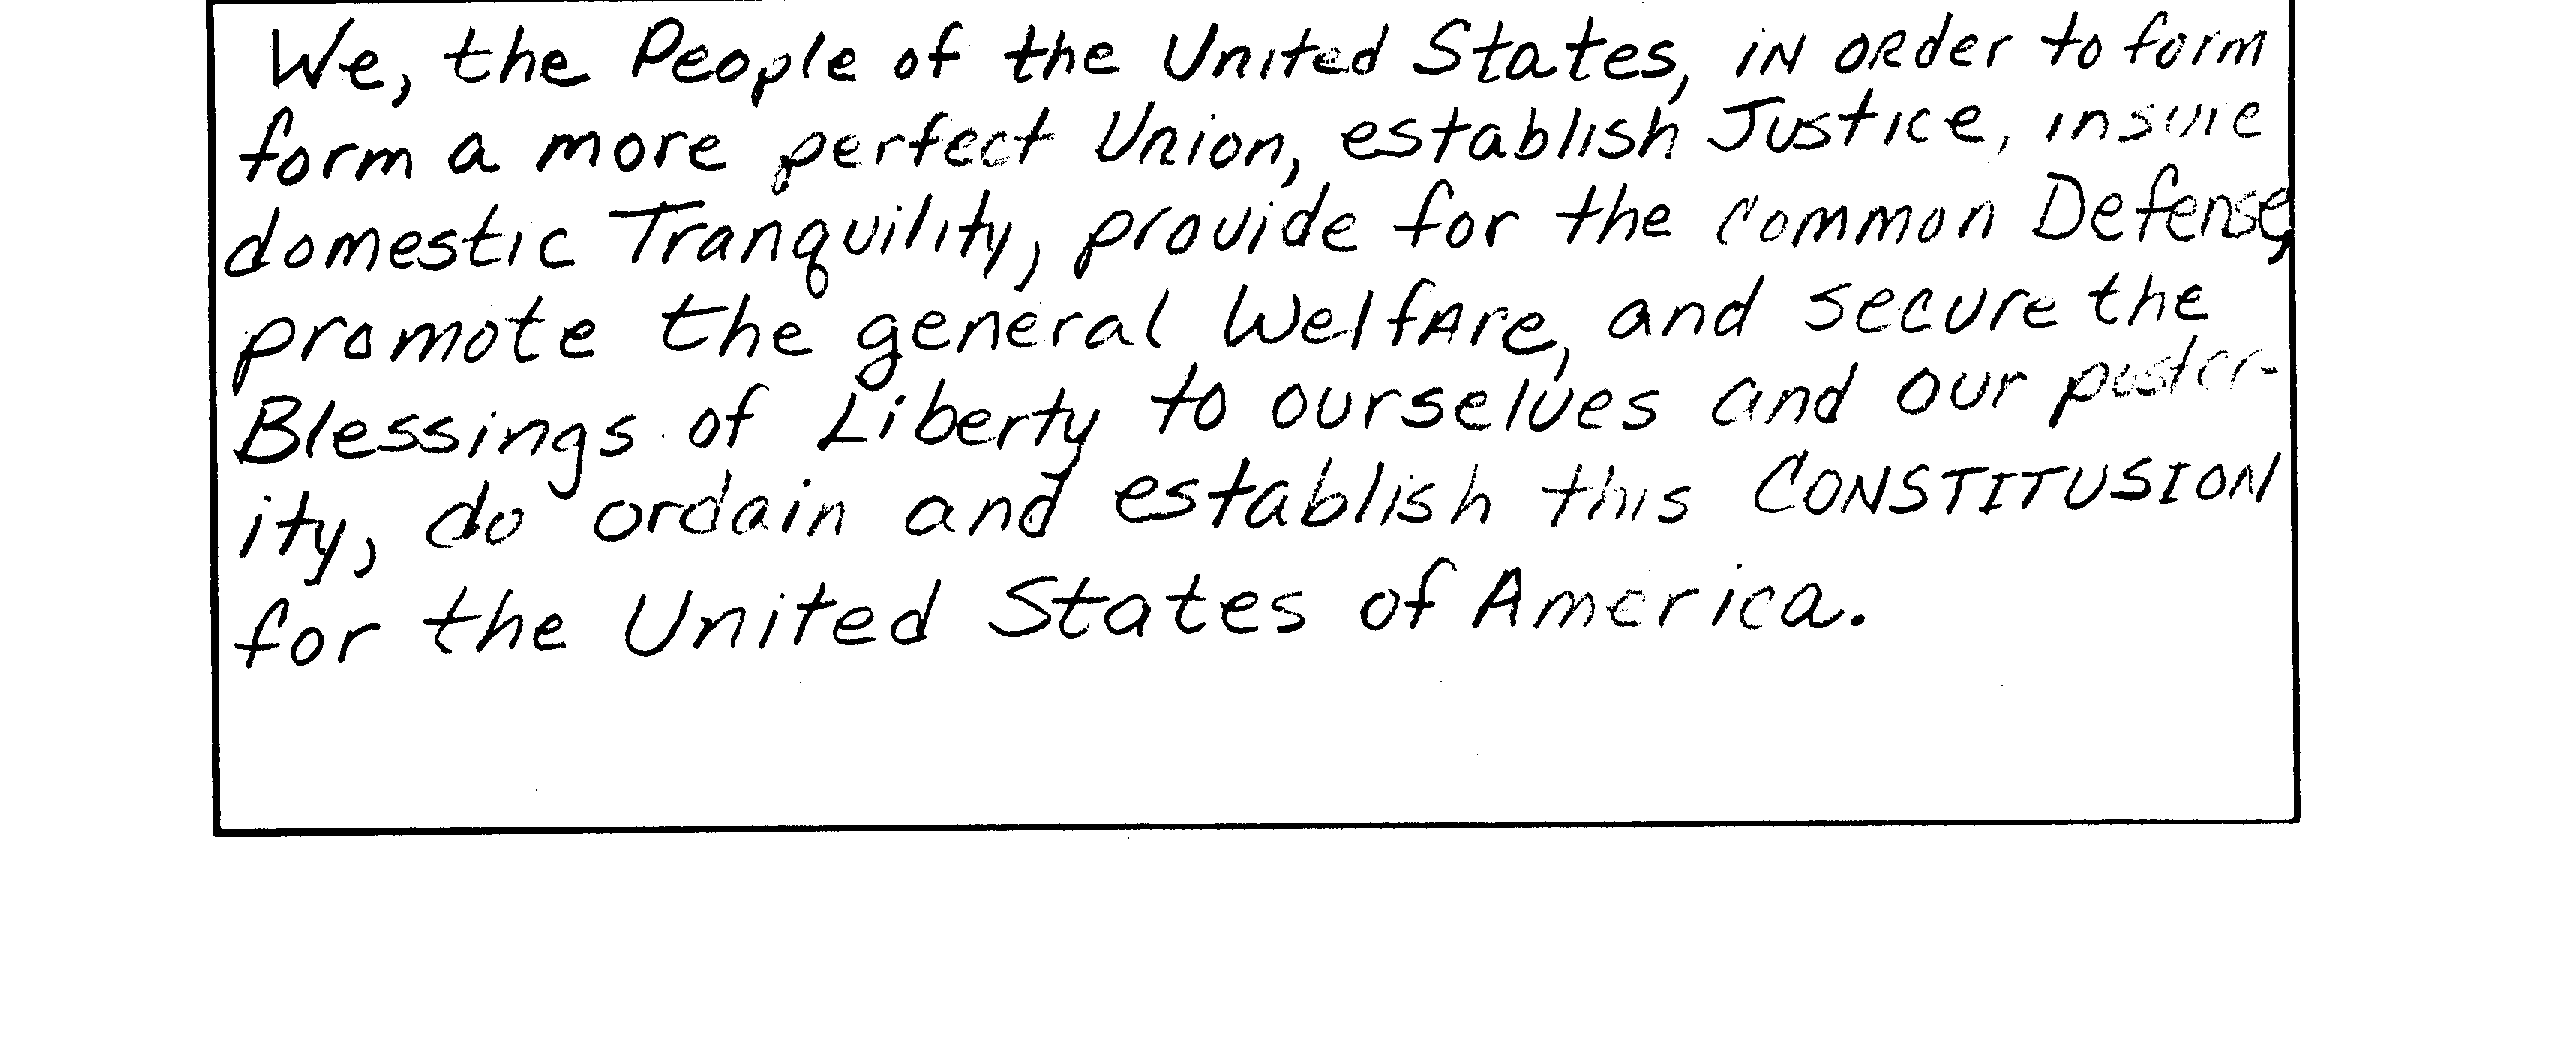 We, the People of the United States, iN ORder to form
form a more perfect Union, establish Justice, insure
domestic Tranquility, provide for the Common Defense,
promote the general WelfAre, and secure the
Blessings of Liberty to ourselves and our poster-
ity, do ordain and establish this CONSTITUSION
for the United States of America.